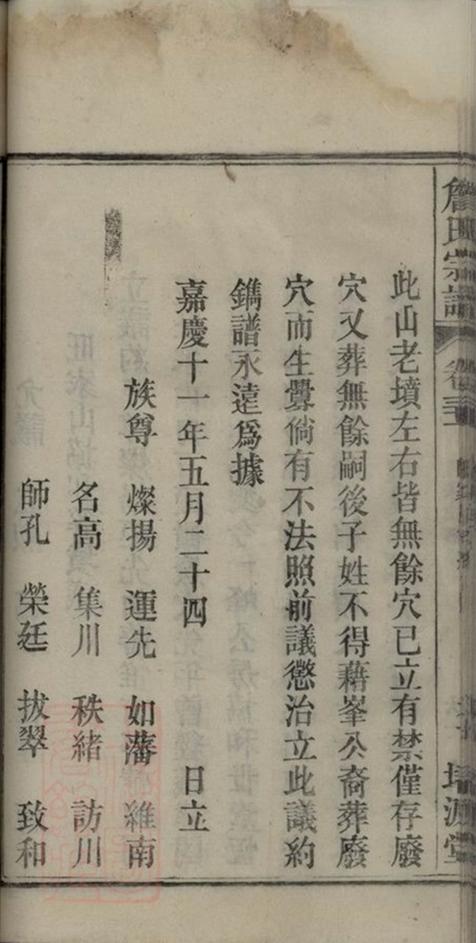 詹氏宗譜
此山老墳左右皆無餘穴已立有禁僅存廢
穴又葬無餘嗣後子姓不得藉峯公裔葬廢
穴而生釁倘有不法照前議懲治立此議約
鐫譜永遠爲據
嘉慶十一年五月二十四　日立
族尊　燦揚　運先　如藩　維南
名高　集川　秩緒　訪川
師孔　榮廷　拔翠　致和